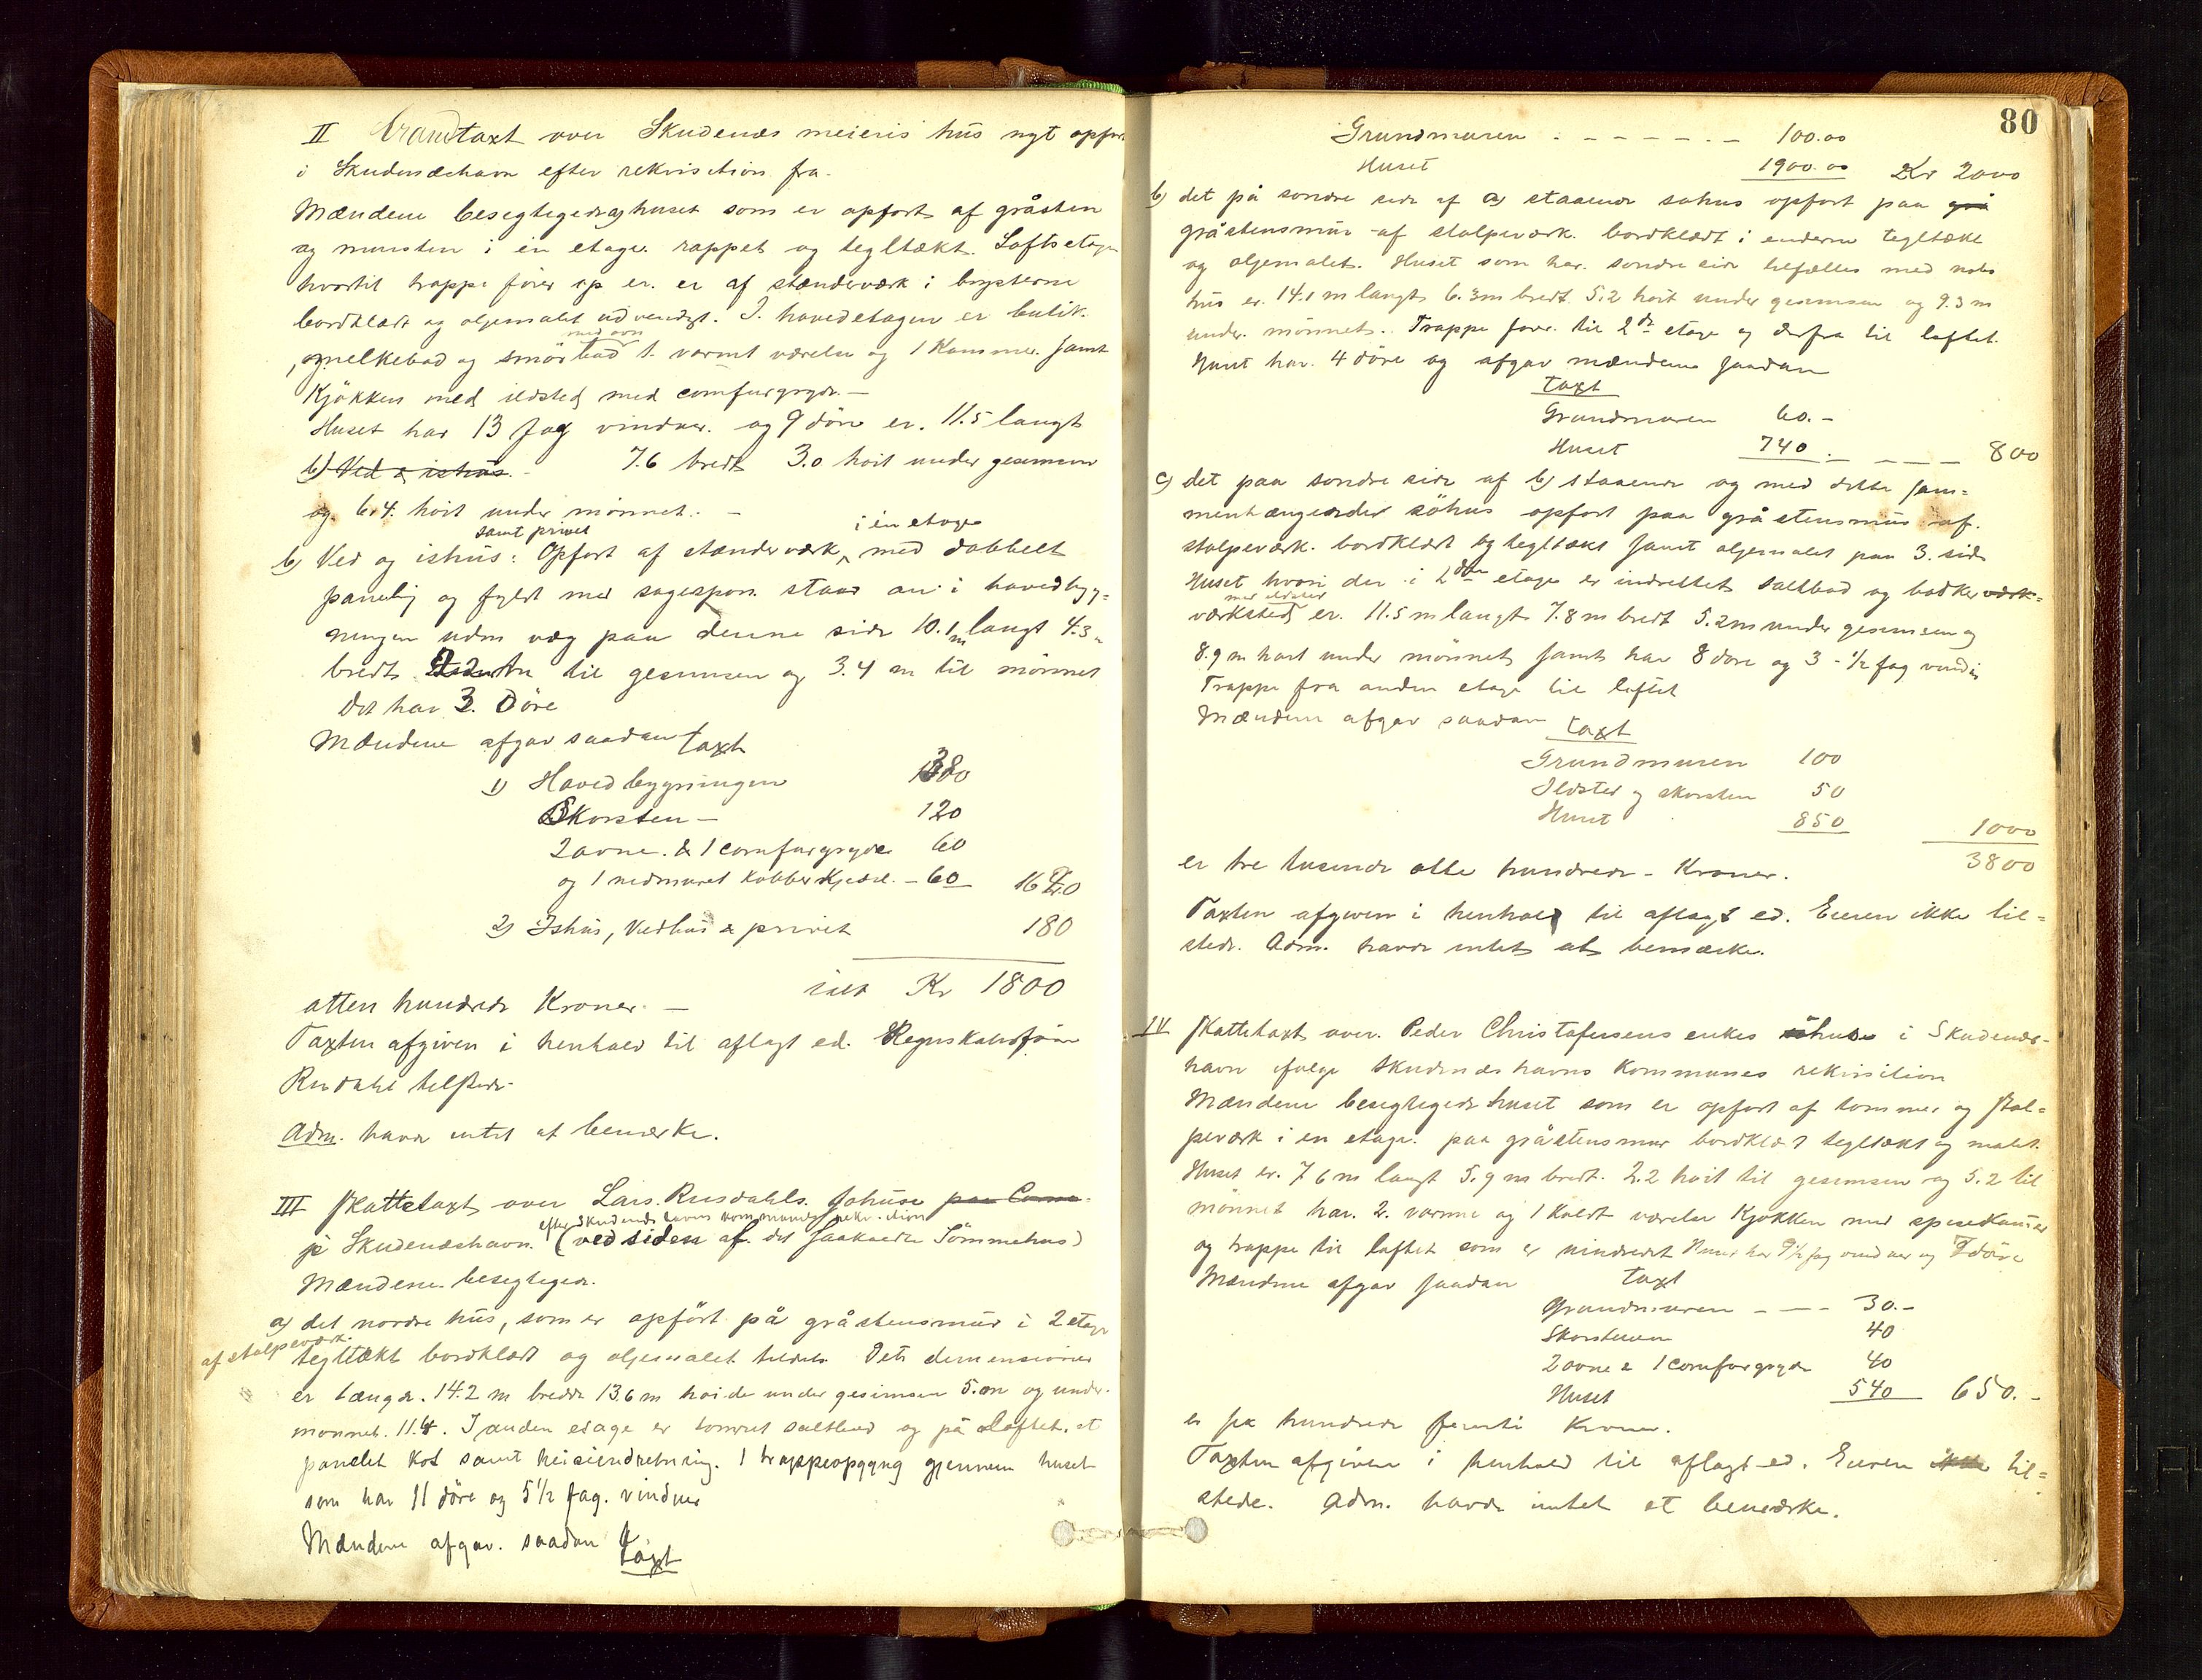 II Brandtaxt over Skudenæs meieris hus nyt opført
i Skudenæshavn efter rekvisition fra.
Mændene besegtigede a) huset som er opfort af gråsten
og mursten i en etage rappet og tegltækt. Loftsetagen
hvortil trappe fører op er. er af stænderværk i brysterne
bordklædt og oljemalet udvendigt. I. hovedetagen er butik.
med ovn
melkebod og smörbod 1. varmt værelse og 1 Kammer. samt
Kjökken med ildsted med comfurgryde. —
Huset har 13 fag vinduer. og 9 döre er. 11.5 langt
b) Ved & ishus. 7.6 bredt 3.0 hoit under gesimsen
og 6.4. hoit under mönnet. —
samt privet i én etage
b) Ved og ishus: Opfort af stænderværk, med dobbelt
paneling og fyldt med sagespon staar an i hovedbyg=
ningen uden væg paa denne side 10.1 m langt 4.3 m
bredt til gesimsen og 3.4 m til mönnet
Det har 3. Döre
Mændene afgav saadan taxt
1) Hovedbygningen 1380
Skorsten — 120
2 ovne. & 1 comfurgryde 60
og 1 nedmuret kobberkjedel. — 60 1620
2) Ishus, Vedhus & privet 180
ialt Kr 1800
atten hundrede Kroner. —
Taxten afgiven i henhold til aflagt ed. Regnskabsförer
Rusdahl tilstede.
Adm. havde intet at bemærke.
III Skattetaxt over Lars. Rusdahls. söhuse paa
efter Skudenæshavns kommunes rekvisition
i Skudenæshavn. (ved siden af det saakaldte Sömmehus)
Mændene besegtigede.
a) det nordre hus, som er opfört på gråstensmur i 2 etager
af stolpeværk.
tegltækt bordklædt og oljemalet tildels Dets dimensioner
er Længde. 14.2 m bredde 13.6 m hoide under gesimsen 5.m og under
mönnet. 11.4. I anden etage er tomret saltbod og på Loftet. et
panelet kot samt heiseindretning. 1 trappeopgang gjennem huset
som har 11 döre og 5 1/2 fag. vinduer
Mændene afgav. saadan taxt
80
Grundmuren . - - - - - . - 100.00
Huset 1900.00 Kr 2000
b) det på sondre side af a) staaende sohus opfort paa grå
gråstensmur af stolpeværk. bordklædt i enderne tegltækt
og oljemalet. Huset som har. sondre side tilfælles med nabo
hus er. 14.1 m langt 6.3m bredt. 5.2 hoit under gesimsen og 9.3 m
under. mönnet. Trappe forer. til 2de etage og derfra til loftet.
Huset har. 4 döre og afgav mændene saadan
taxt
Grundmuren 60.-
Huset 740. - - - - 800
c) det paa sondre side af b) staaende og med dette sam=
menhængender söhus opfort paa gråstensmur af.
stolpeværk. bordklædt og tegltækt samt oljemalet paa 3. sider
Huset hvori der i 2den etage er indrettet saltbod og bödker værk=
med ildsted
værksted er. 11.5 m langt 7.8 m bredt 5.2m under gesimsen og
8.9 m hoit under mönnet samt har 8 döre og 3 - 1/2 fag vinduer
Trappe fra anden etage til loftet
Mændene afgav saadan taxt
Grundmuren 100
Ildsted og skorsten 50
Huset 850 1000
3800
er tre tusende otte hundrede - Kroner.
Taxten afgiven i henhold til aflagt ed. Eieren ikke til=
stede. Adm. havde intet at bemærke.
IV Skattetaxt over. Peder Christofersens enkes huse i Skudenæs-
havn ifolge Skudenæshavns Kommunes rekvisition
Mændene besegtigede huset som er opfort af tommer og stol=
peværk i en etage. paa gråstensmur bordklædt tegltækt og malet.
Huset er. 7.6 m langt 5.9 m bredt. 2.2 hoit til gesimsen og 5.2 til
mönnet har. 2. varme og 1 koldt værelse Kjökken med spisekamer
og trappe til loftet som er uindredet Huset har 9 1/2 fag vinduer og 7 döre
Mændene afgav saadan taxt
Grundmuren - - - 30.-
Skorstenen 40
2 ovne & 1 comfurgryde 40
Huset 540 650.-
er sex hundrede femti Kroner.
Taxten afgiven i henhold til aflagt ed. Eieren ikke til=
stede. Adm. havde intet at bemærke.